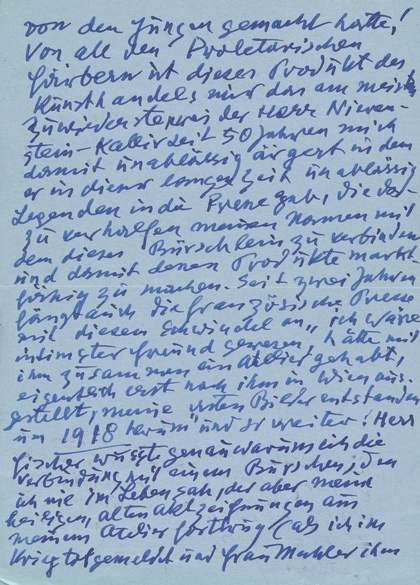 von den Jungen gemacht hatte!
Von all den Proletarischen
Färbern ist dieses Produkt des
Kunsthandels mir das am meisten
zuwiderste, weil der Herr Niren-
stein-Kallir seit 50 Jahren mich
damit unablässig ärgert in dem
er in dieser langen Zeit unablässig
Legenden in die Presse gab, die da
zu verhelfen meinen Namen mit
dem dieses Bürschlein zu verbinden
und damit dessen Produkte markt-
fähig zu machen. Seit zwei Jahren
fängt auch die französische Presse
mit diesem Schwindel an „ich wäre
intimster Freund gewesen, hätte mit
ihm zusammen ein Atelier gehabt,
eigentlich erst nach ihm in Wien aus-
gestellt, meine ersten Bilder entstanden
um 1918 herum" und so weiter! Herr
Fischer wusste genau warum ich die
Verbindung mit einem Burschen, den
ich nie im Leben sah, der aber meine
heiligen, alten Aktzeichnungen aus
meinem Atelier forttrug (als ich im
Krieg totgemeldet und Frau Mahler ihm